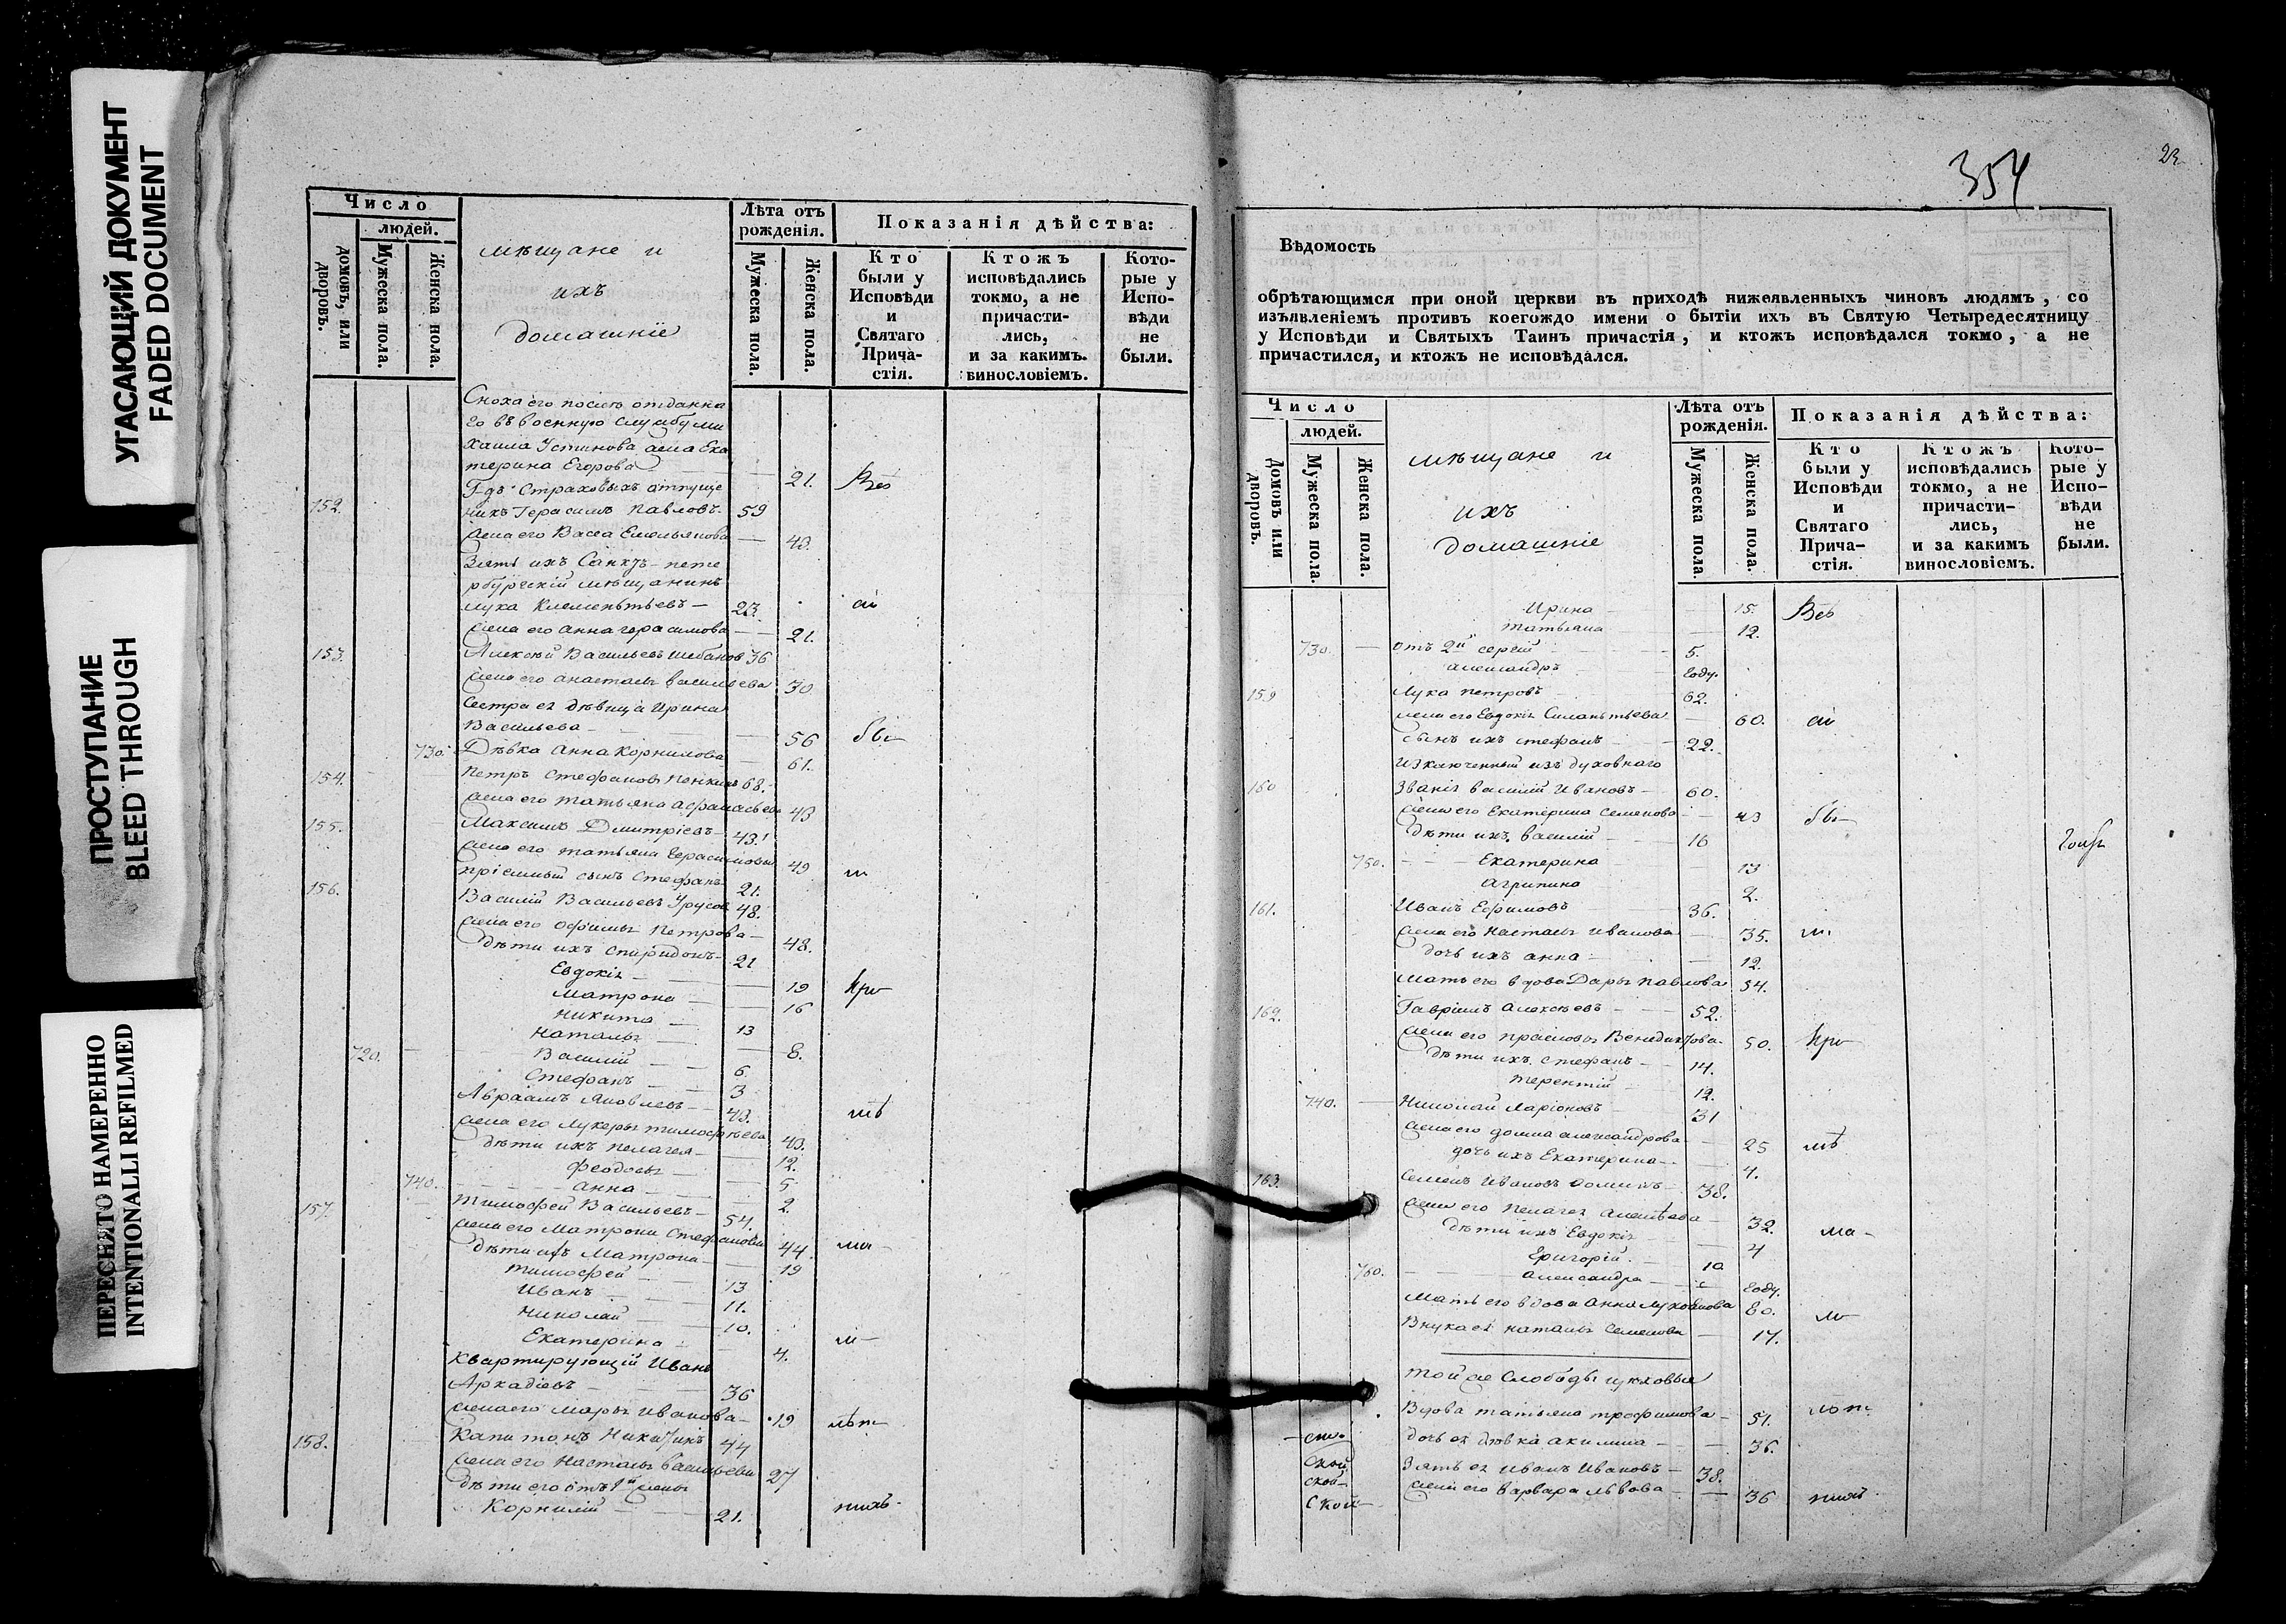 УГАСАЮЩИЙ ДОКУМЕНТ
FADED DOCUMENT
ПРОСТУПАНИЕ
BLEED THROUGH
ПЕРЕСНЯТО НАМЕРЕННО
INTENTIONALLI REFILMED
Число
людей.
домовъ, или дворовъ.
Мужеска пола.
Женска пола.
мѣщане и
ихъ
домашніе
Лѣта отъ рожденія.
Мужеска пола.
Женска пола.
Показанія дѣйства:
Кто были у Исповѣди и Святаго Причастія.
Ктожъ исповѣдались токмо, а не причастились, и за какимъ винословіемъ.
Которые у Исповѣди не были.
Сноха его послѣ отданна
го въ военную службу Ми
хаила Устинова жена Ека
терина Егорова 21. Всѣ
Г-дъ Страховыхъ отпуще
152. никъ Герасимъ Павловъ 59
жена его Васса Емельянова 43.
Зять ихъ Санктъ-пете
рбургскій мѣщанинъ
лука Клементьевъ 23.
жена его Анна герасимова 21.
153. Алексѣй Васильевъ Шебанов 36
жена его анастасья васильева 30
Сестра ея дѣвица Ирина
Васильева 56
730. Дѣвка Анна Корнилова 61.
154. Петръ Стефановъ 68.
жена его татьяна афанасьева 43
155. Максимъ Дмитріевъ 43.
жена его татьяна Герасимова 49
пріемный сынъ Стефанъ 21.
156. Василій Васильевъ Урусов 48.
жена его Офимья Петрова 48.
дѣти ихъ Спиридонъ 21
Евдокія 19
Матрона 16
Никита 13
Наталья 8.
720. Василій 6.
Стефанъ 3
Авраамъ Яковлевъ 43.
жена его Лукерья тимофѣева 43.
дѣти ихъ Пелагея 12.
Феодосья 5
740. Анна 2.
157. Тимофей Васильевъ 54.
жена его Матрона Стефанова 44.
дѣти ихъ Матрона 19
Тимофей 13
Иванъ 11.
Николай 10.
Екатерина 4.
Квартирующій Иванъ
Аркадіевъ 36
жена его Марья Иванова 19
158. Капитонъ Никитинъ 44
жена его Настасья васильева 27
дѣти его отъ 1й жены
Корнилій 21.
354
Вѣдомость
обрѣтающимся при оной церкви въ приходѣ нижеявленныхъ чиновъ людямъ, со
изъявленіемъ противъ коегождо имени о бытіи ихъ въ Святую Четыредесятницу
у Исповѣди и Святыхъ Таинъ причастія, и ктожъ исповѣдался токмо, а не
причастился, и ктожъ не исповѣдался.
Число
людей.
Домовъ или дворовъ.
Мужеска пола.
Женска пола.
мѣщане и
ихъ
домашніе
Лѣта отъ рожденія.
Мужеска пола.
Женска пола.
Показанія дѣйства:
Кто были у Исповѣди и Святаго Причастія.
Ктожъ исповѣдались токмо, а не причастились, и за какимъ винословіемъ.
Которые у Исповѣди не были.
Ирина 15. Всѣ
Татьяна 12.
730. отъ 2й сергій 5.
александръ году.
159 Лука Петровъ 62.
жена его Евдокія Силантьева 60.
сынъ ихъ стефанъ 22.
Изключенный изъ духовнаго
160 званія василій Ивановъ 60.
жена его Екатерина Семенова 43
дѣти ихъ василій 16
750. Екатерина 13
Агрипина 2.
161. Иванъ Ефимовъ 36.
жена его Настасья иванова 35.
дочь ихъ анна 12.
мать его вдова Дарья павлова 54.
162. Гавріилъ Алексѣевъ 52.
жена его прасковья Венедиктова 50.
дѣти ихъ стефанъ 14.
терентій 12.
740. Николай Ларіоновъ 31
жена его домна александрова 25
дочь ихъ Екатерина 4.
163. Семенъ Ивановъ 38.
жена его Пелагея алексѣева 32.
дѣти ихъ Евдокія 4
Григорій 10
760. Александра году.
мать его вдова Анна 80.
Внука ея наталья Семенова 17.
той же Слободы цѣховые
Вдова татьяна трофимова 51.
дочь ея дѣвка акилина 36.
Зять ея Иванъ Ивановъ 38.
жена его варвара львова 36